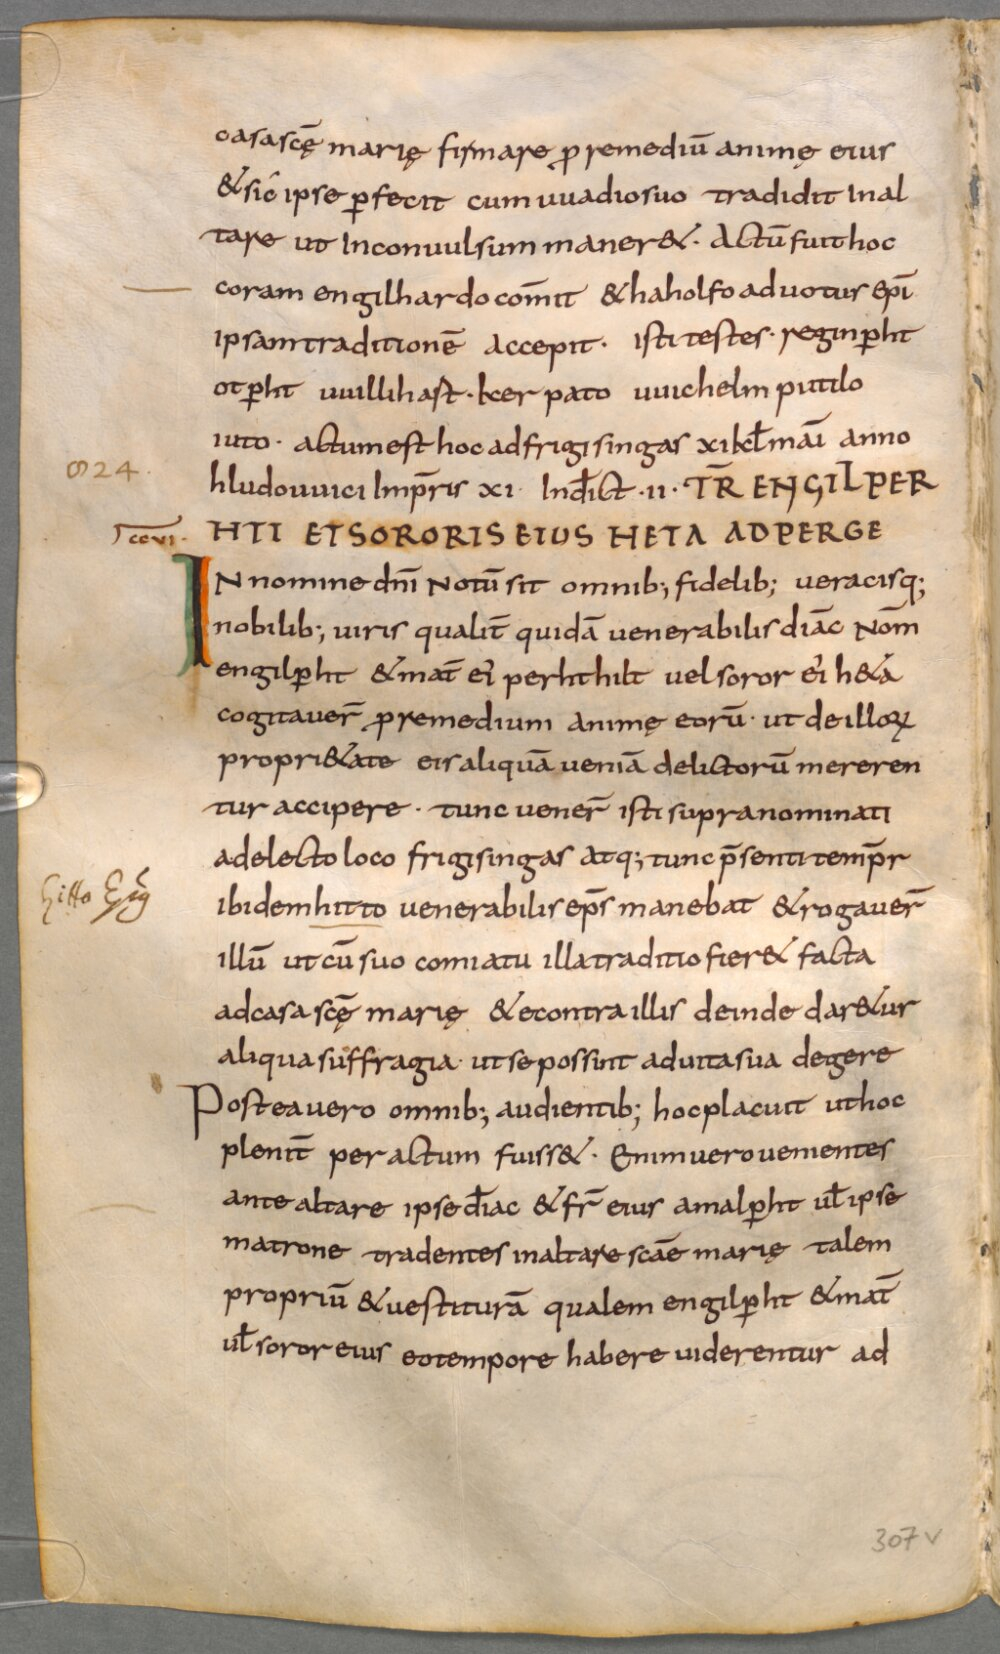 casa scē marię firmare ꝓ remediū animę eius
& sic ipse ꝑfecit cum uuadio suo tradidit In al
tare ut Inconuulsum maner&. Actū fuit hoc
coram engilhardo com̄it & haholfo aduotus ep̄i
ipsam traditionē accepit. isti testes. reginꝑht
otꝑht uuillihast. kerpato uuichelm putilo
iuto. actum est hoc ad frigisingas xi kl̄ mai anno
824.
hludouuici Imp̄ris xi Ind̄ict. ii. TR̄ ENGILPER
ccvi.
HTI ET SORORIS EIUS HETA AD PERGE
IN nomine dn̄i Notū sit omnib; fidelib; ueracisq;
nobilib; uiris qualit̄ quidā uenerabilis diāc Nom̄
engilꝑht & mat̄ ei perhthilt uel soror ei h&a
cogitauer̄ ꝓ remedium animę eorū. ut de illoꝝ
propri&ate eis aliquā ueniā delictorū mereren
tur accipere. tunc uener̄ isti supranominati
ad electo loco frigisingas atq; tunc p̄senti temp̄r
hitto Ep̄s
ibidem hitto uenerabilis ep̄s manebat & rogauer̄
illū ut cū suo comiatu illa traditio fier& facta
ad casa scē marię & econtra illis deinde dar&ur
aliqua suffragia. ut se possint ad uita sua degere
Postea uero omnib; audientib; hoc placuit ut hoc
plenit̄ peractum fuiss&. Enim uero uenientes
ante altare ipse d̄iac & fr̄ eius amalꝑht ul̄ ipse
matrone tradentes in altare scāe marię talem
propriū & uestiturā qualem engilꝑht & mat̄
ul̄ soror eius eo tempore habere uiderentur ad
307 v